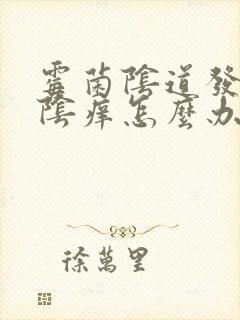 霉菌陰道發
陰痒怎麼办
徐萬里